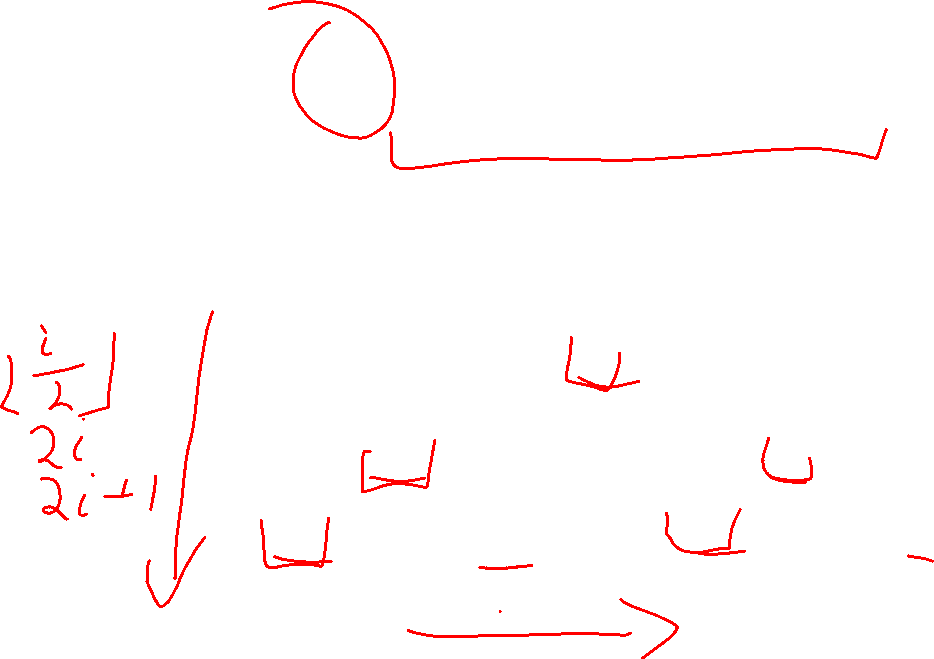 ⌊i/2⌋
2i
2i+1